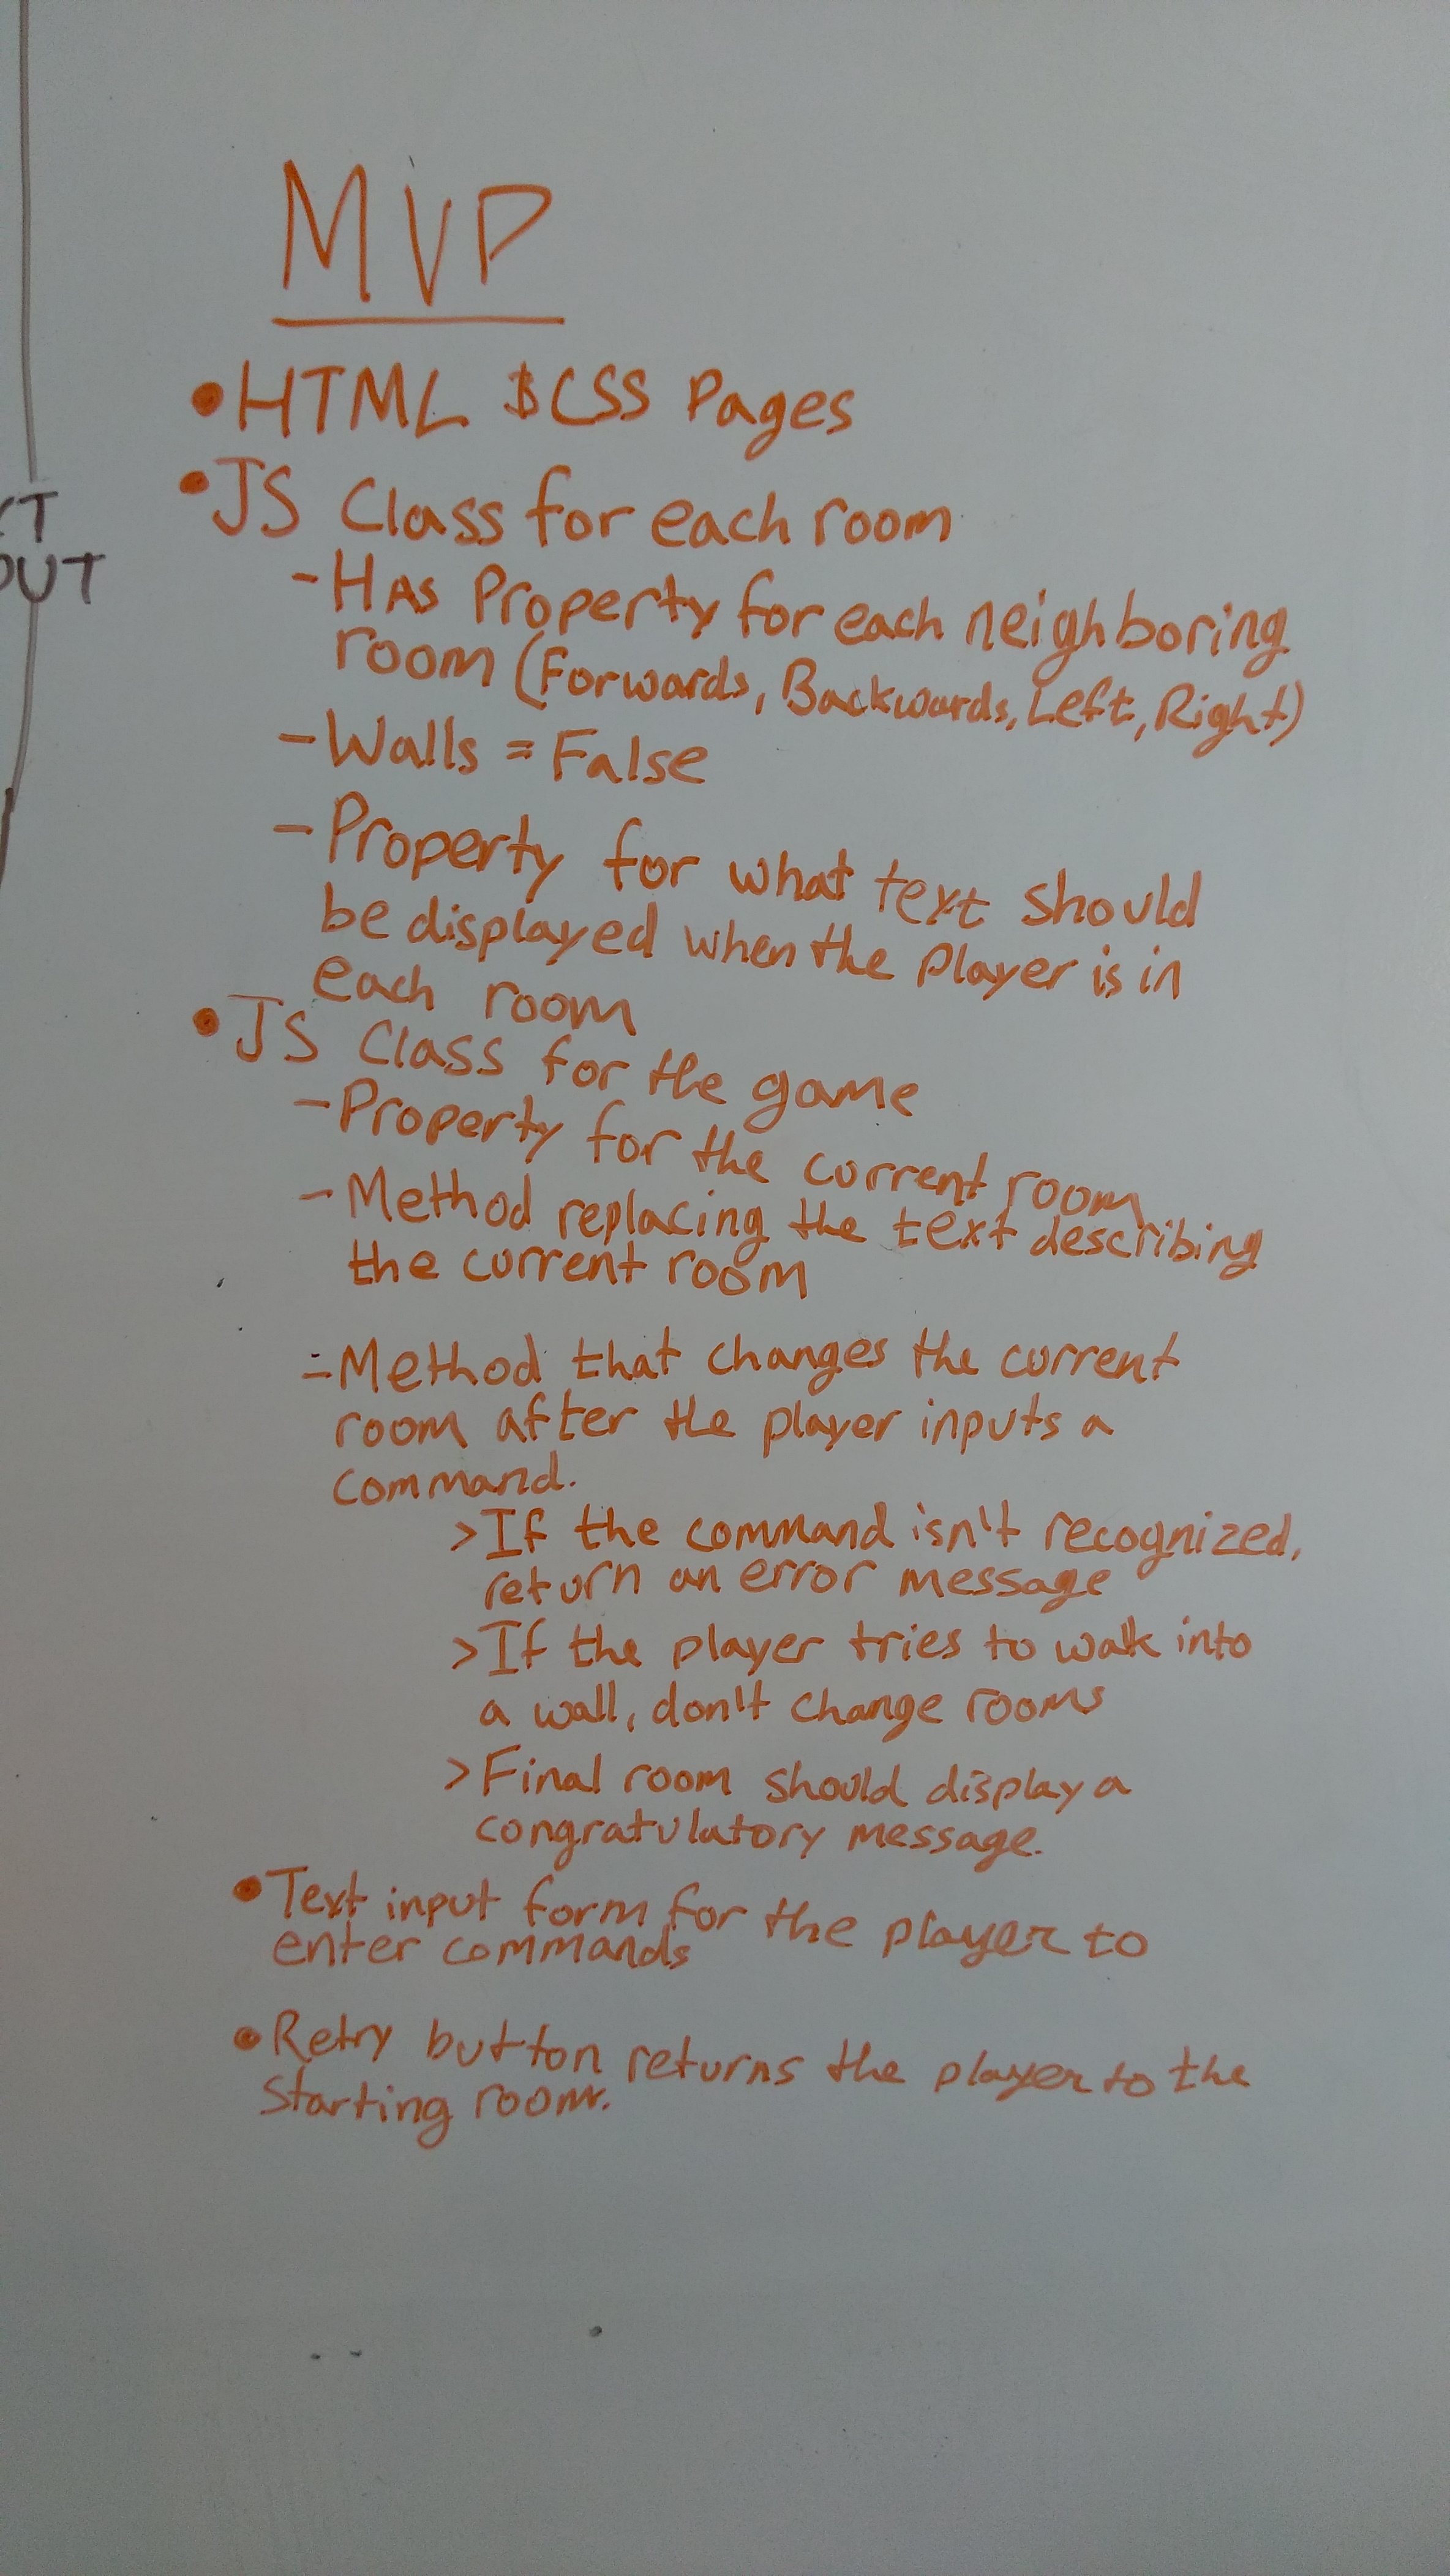 MVP
• HTML & CSS Pages
• JS Class for each room
- Has Property for each neighboring
room (Forwards, Backwards, Left, Right)
- Walls = False
- Property for what text should
be displayed when the player is in
each room
• JS Class for the game
- Property for the current room
- Method replacing the text describing
the current room
- Method that changes the current
room after the player inputs a
command.
> If the command isn't recognized,
return an error message
> If the player tries to walk into
a wall, don't change rooms
> Final room should display a
congratulatory message.
• Text input form for the player to
enter commands
• Retry button returns the player to the
starting room.